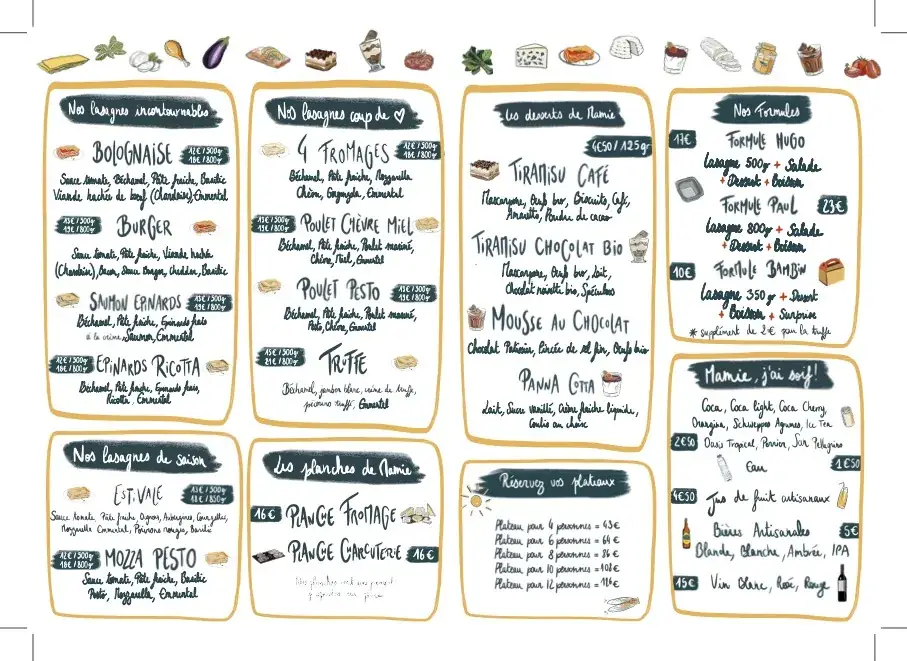 Nos lasagnes incontournables
BOLOGNAISE
12€ / 500g
18€ / 800g
Sauce tomate, Béchamel, Pâte fraîche, Basilic
Viande hachée de bœuf (Charolaise), Emmental
BURGER
13€ / 500g
19€ / 800g
Sauce tomate, Pâte fraîche, Viande hachée
(Charolaise), Bacon, Sauce Burger, Cheddar, Basilic
SAUMON EPINARDS
13€ / 500g
19€ / 800g
Béchamel, Pâte fraîche, Epinards frais
à la crème, Saumon, Emmental
EPINARDS RICOTTA
12€ / 500g
18€ / 800g
Béchamel, Pâte fraîche, Epinards frais,
Ricotta, Emmental
Nos lasagnes de saison
ESTIVALE
13€ / 500g
18€ / 850g
Sauce tomate, Pâte fraîche, Oignons, Aubergines, Courgettes,
Mozzarella, Emmental, Poivrons rouges, Basilic
MOZZA PESTO
12€ / 500g
18€ / 800g
Sauce tomate, Pâte fraîche, Basilic
Pesto, Mozzarella, Emmental
Nos lasagnes coup de
4 FROMAGES
12€ / 500g
18€ / 800g
Béchamel, Pâte fraîche, Mozzarella
Chèvre, Gorgonzola, Emmental
POULET CHÈVRE MIEL
13€ / 500g
19€ / 800g
Béchamel, Pâte fraîche, Poulet mariné,
Chèvre, Miel, Emmental
POULET PESTO
13€ / 500g
19€ / 800g
Béchamel, Pâte fraîche, Poulet mariné,
Pesto, Chèvre, Emmental
TRUFFE
15€ / 500g
21€ / 800g
Béchamel, jambon blanc, crème de truffe,
pecorino truffé, Emmental
Les planches de Mamie
16€ PLANCHE FROMAGE
PLANCHE CHARCUTERIE 16€
Les desserts de Mamie
4€50 / 125gr
TIRAMISU CAFÉ
Mascarpone, Œufs bio, Biscuits, Café,
Amaretto, Poudre de cacao
TIRAMISU CHOCOLAT BIO
Mascarpone, Œufs bio, Lait,
Chocolat noisette bio, Spéculoos
MOUSSE AU CHOCOLAT
Chocolat Patissier, Pincée de sel fin, Œufs bio
PANNA COTTA
Lait, Sucre vanillé, Crème fraîche liquide,
Coulis au choix
Réservez vos plateaux
Plateau pour 4 personnes = 43€
Plateau pour 6 personnes = 64€
Plateau pour 8 personnes = 86€
Plateau pour 10 personnes = 102€
Plateau pour 12 personnes = 116€
Nos Formules
17€ FORMULE HUGO
Lasagne 500g + Salade
+ Dessert + Boisson
FORMULE PAUL 23€
Lasagne 800g + Salade
+ Dessert + Boisson
10€ FORMULE BAMBIN
Lasagne 350 gr + Dessert
+ Boisson + Surprise
* supplément de 2€ pour la truffe
Mamie, j'ai soif!
Coca, Coca light, Coca Cherry,
Orangina, Schweppes Agrumes, Ice Tea
2€50 Oasis Tropical, Perrier, San Pellegrino
Eau 1€50
4€50 Jus de fruit artisanaux
Bières Artisanales 5€
Blonde, Blanche, Ambrée, IPA
15€ Vin Blanc, Rosé, Rouge